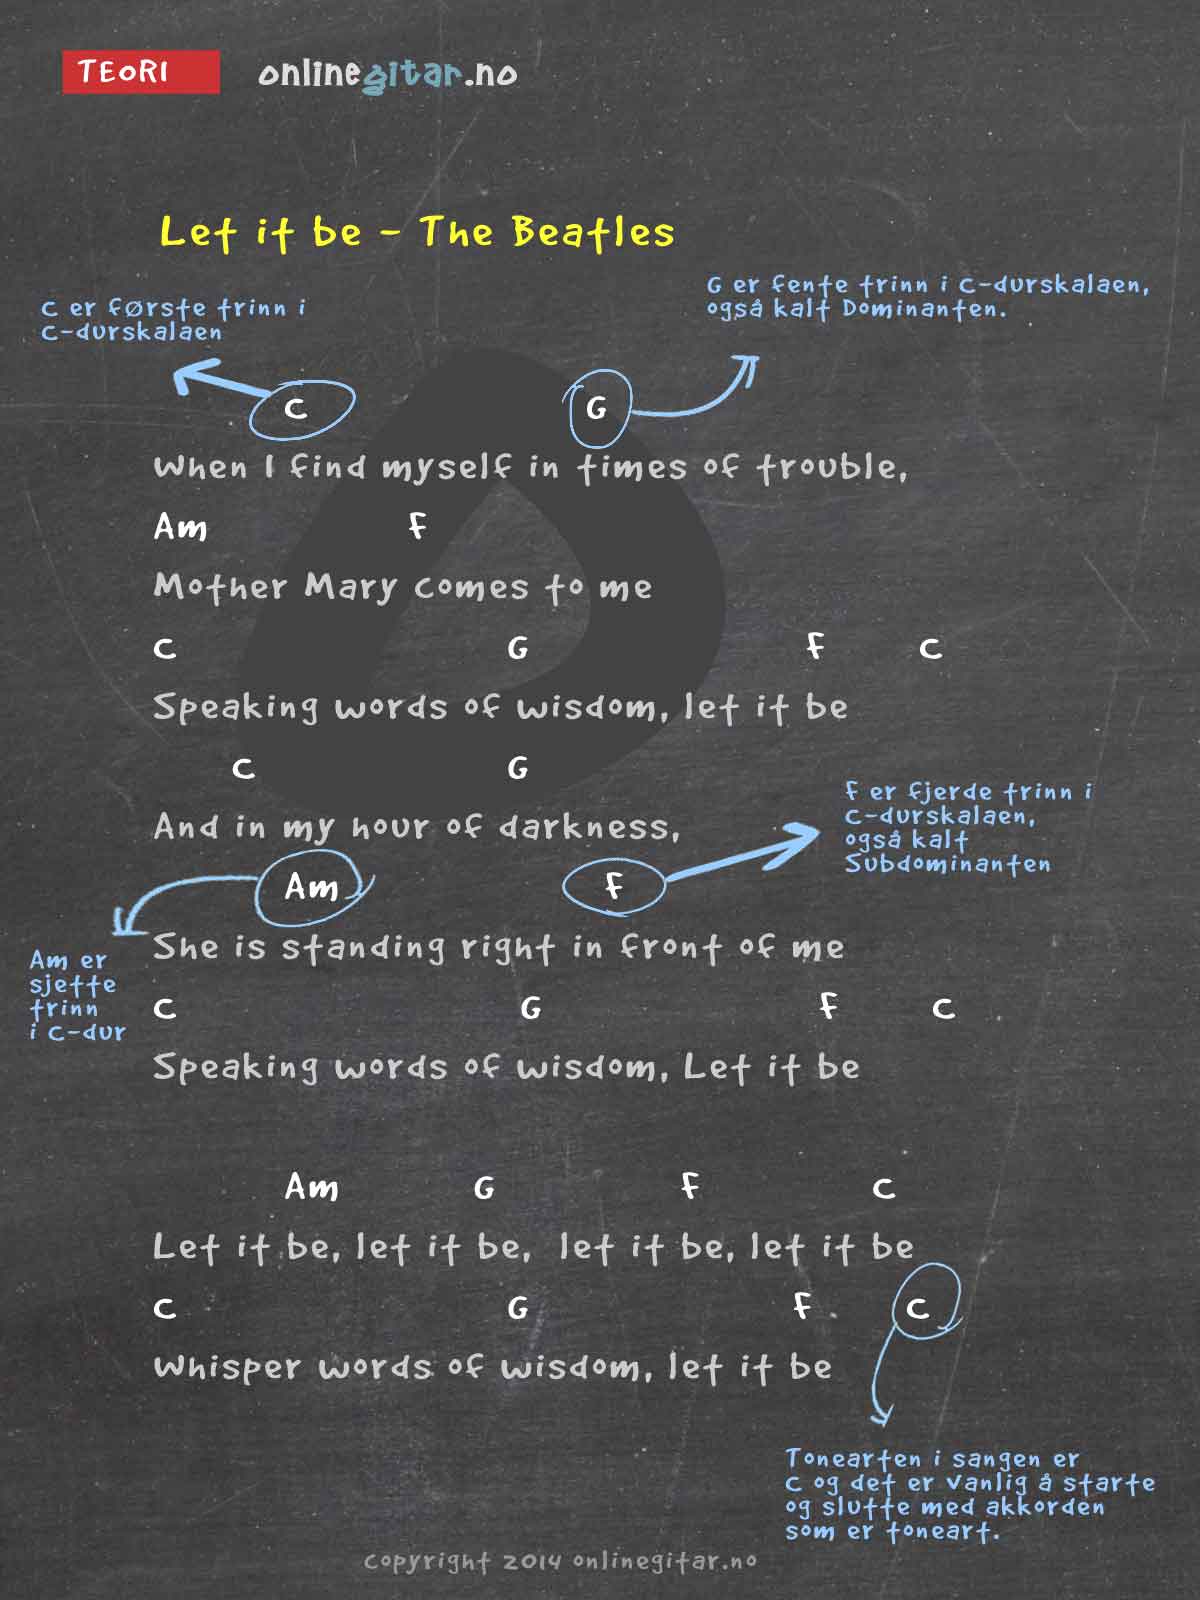 TEORI
onlinegitar.no
Let it be - The Beatles
C er første trinn i
C-durskalaen
G er fente trinn i C-durskalaen,
også kalt Dominanten.
C G
When I find myself in times of trouble,
Am F
Mother Mary comes to me
C G F C
Speaking words of wisdom, let it be
C G
And in my hour of darkness,
F er fjerde trinn i
C-durskalaen,
også kalt
Subdominanten
Am F
She is standing right in front of me
Am er
sjette
trinn
i C-dur
C G F C
Speaking words of wisdom, Let it be
Am G F C
Let it be, let it be, let it be, let it be
C G F C
Whisper words of wisdom, let it be
Tonearten i sangen er
C og det er vanlig å starte
og slutte med akkorden
som er toneart.
copyright 2014 onlinegitar.no